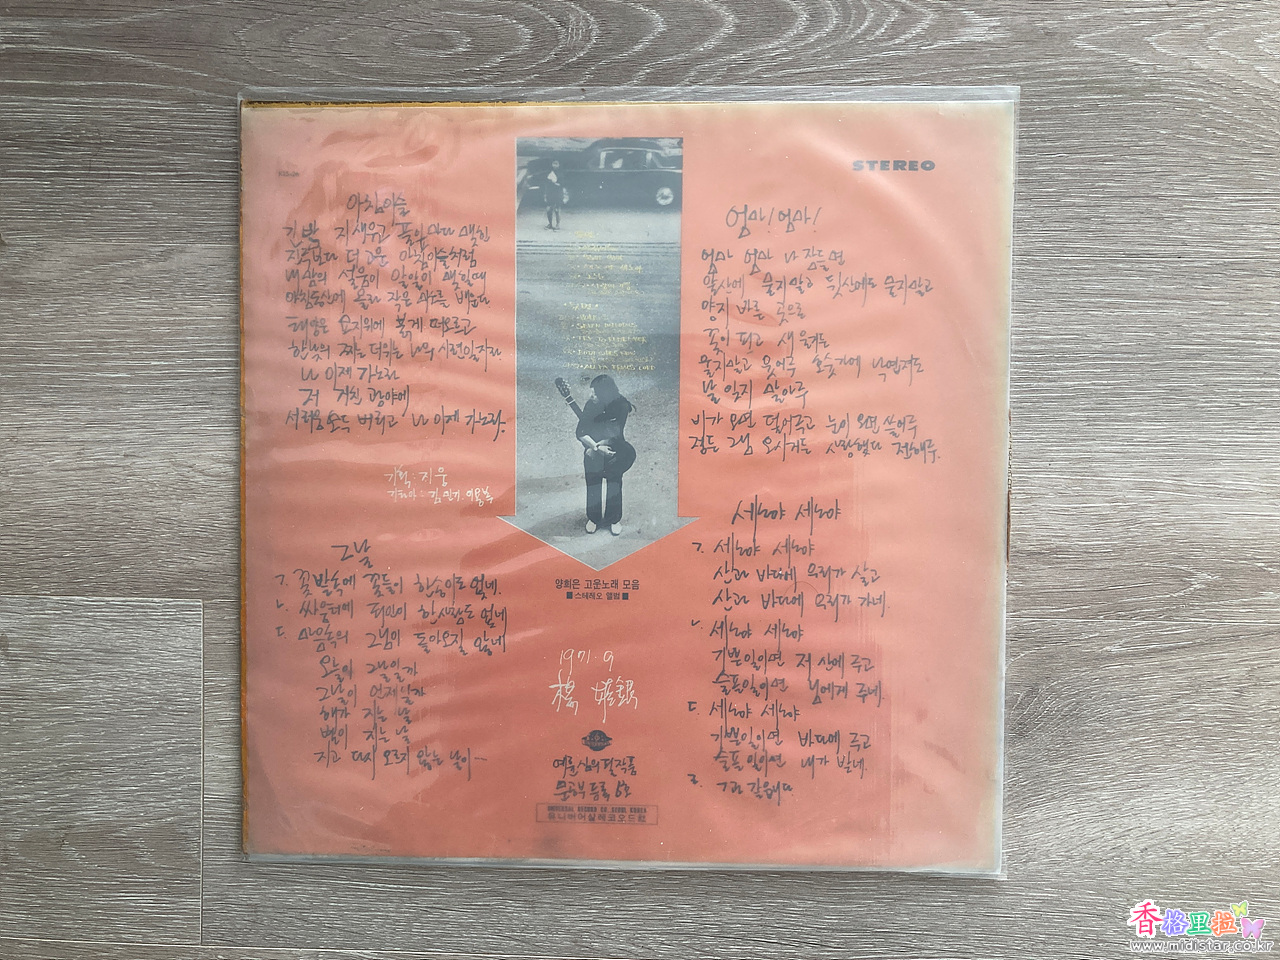 STEREO
아침이슬
긴 밤 지새우고 풀잎마다 맺힌
진주보다 더 고운 아침이슬처럼
내 맘의 설움이 알알이 맺힐때
아침동산에 올라 작은 미소를 배운다
태양은 묘지위에 붉게 떠오르고
한낮의 찌는 더위는 나의 시련일지라
나 이제 가노라
저 거친 광야에
서러움 모두 버리고 나 이제 가노라.
기획 : 지웅
김민기 이용복
그날
ㄱ. 꽃밭속에 꽃들이 한송이도 없네.
ㄴ. 싸움터에 죄인이 한사람도 없네
ㄷ. 마음속의 그님이 돌아오질 않네
오늘이 그날일까
그날이 언제일까
해가 지는 날
별이 지는 날
지고 다시 오르지 않는 날이—
양희은 고운노래 모음
■ 스테레오 앨범 ■
1971. 9
楊 姬銀
문공부 등록 호
유니버어살레코오드사
엄마! 엄마!
엄마 엄마 나 잠들면
앞산에 묻지말고 뒷산에도 묻지말고
양지 바른 곳으로
꽃이 피고 새 울면은
울지말고 웃어주 호숫가에 낙엽져도
날 잊지 말아주
비가 오면 덮어주고 눈이 오면 쓸어주
정든 그님 오시거든 사랑했다 전해주.
세노야 세노야
ㄱ. 세노야 세노야
산과 바다에 우리가 살고
산과 바다에 우리가 가네.
ㄴ. 세노야 세노야
기쁜일이면 저 산에 주고
슬픈일이면 님에게 주네.
ㄷ. 세노야 세노야
기쁜일이면 바다에 주고
슬픈일이면 내가 받네.
ㄹ. ㄱ과 같읍니다.
香格里拉
www.midistar.co.kr